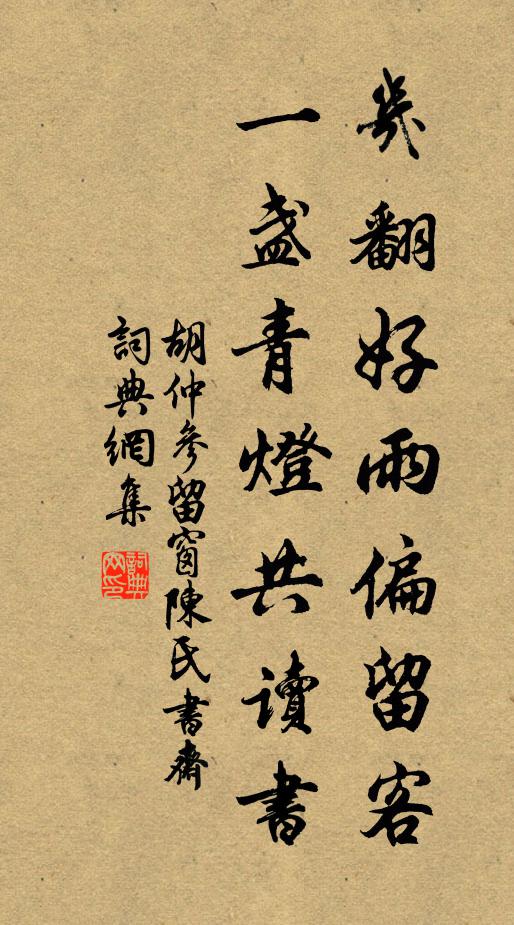 幾翻好雨偏留客
一盞青燈共讀書
胡仲參留窗陳氏書齋
詞典網集
詞典网印